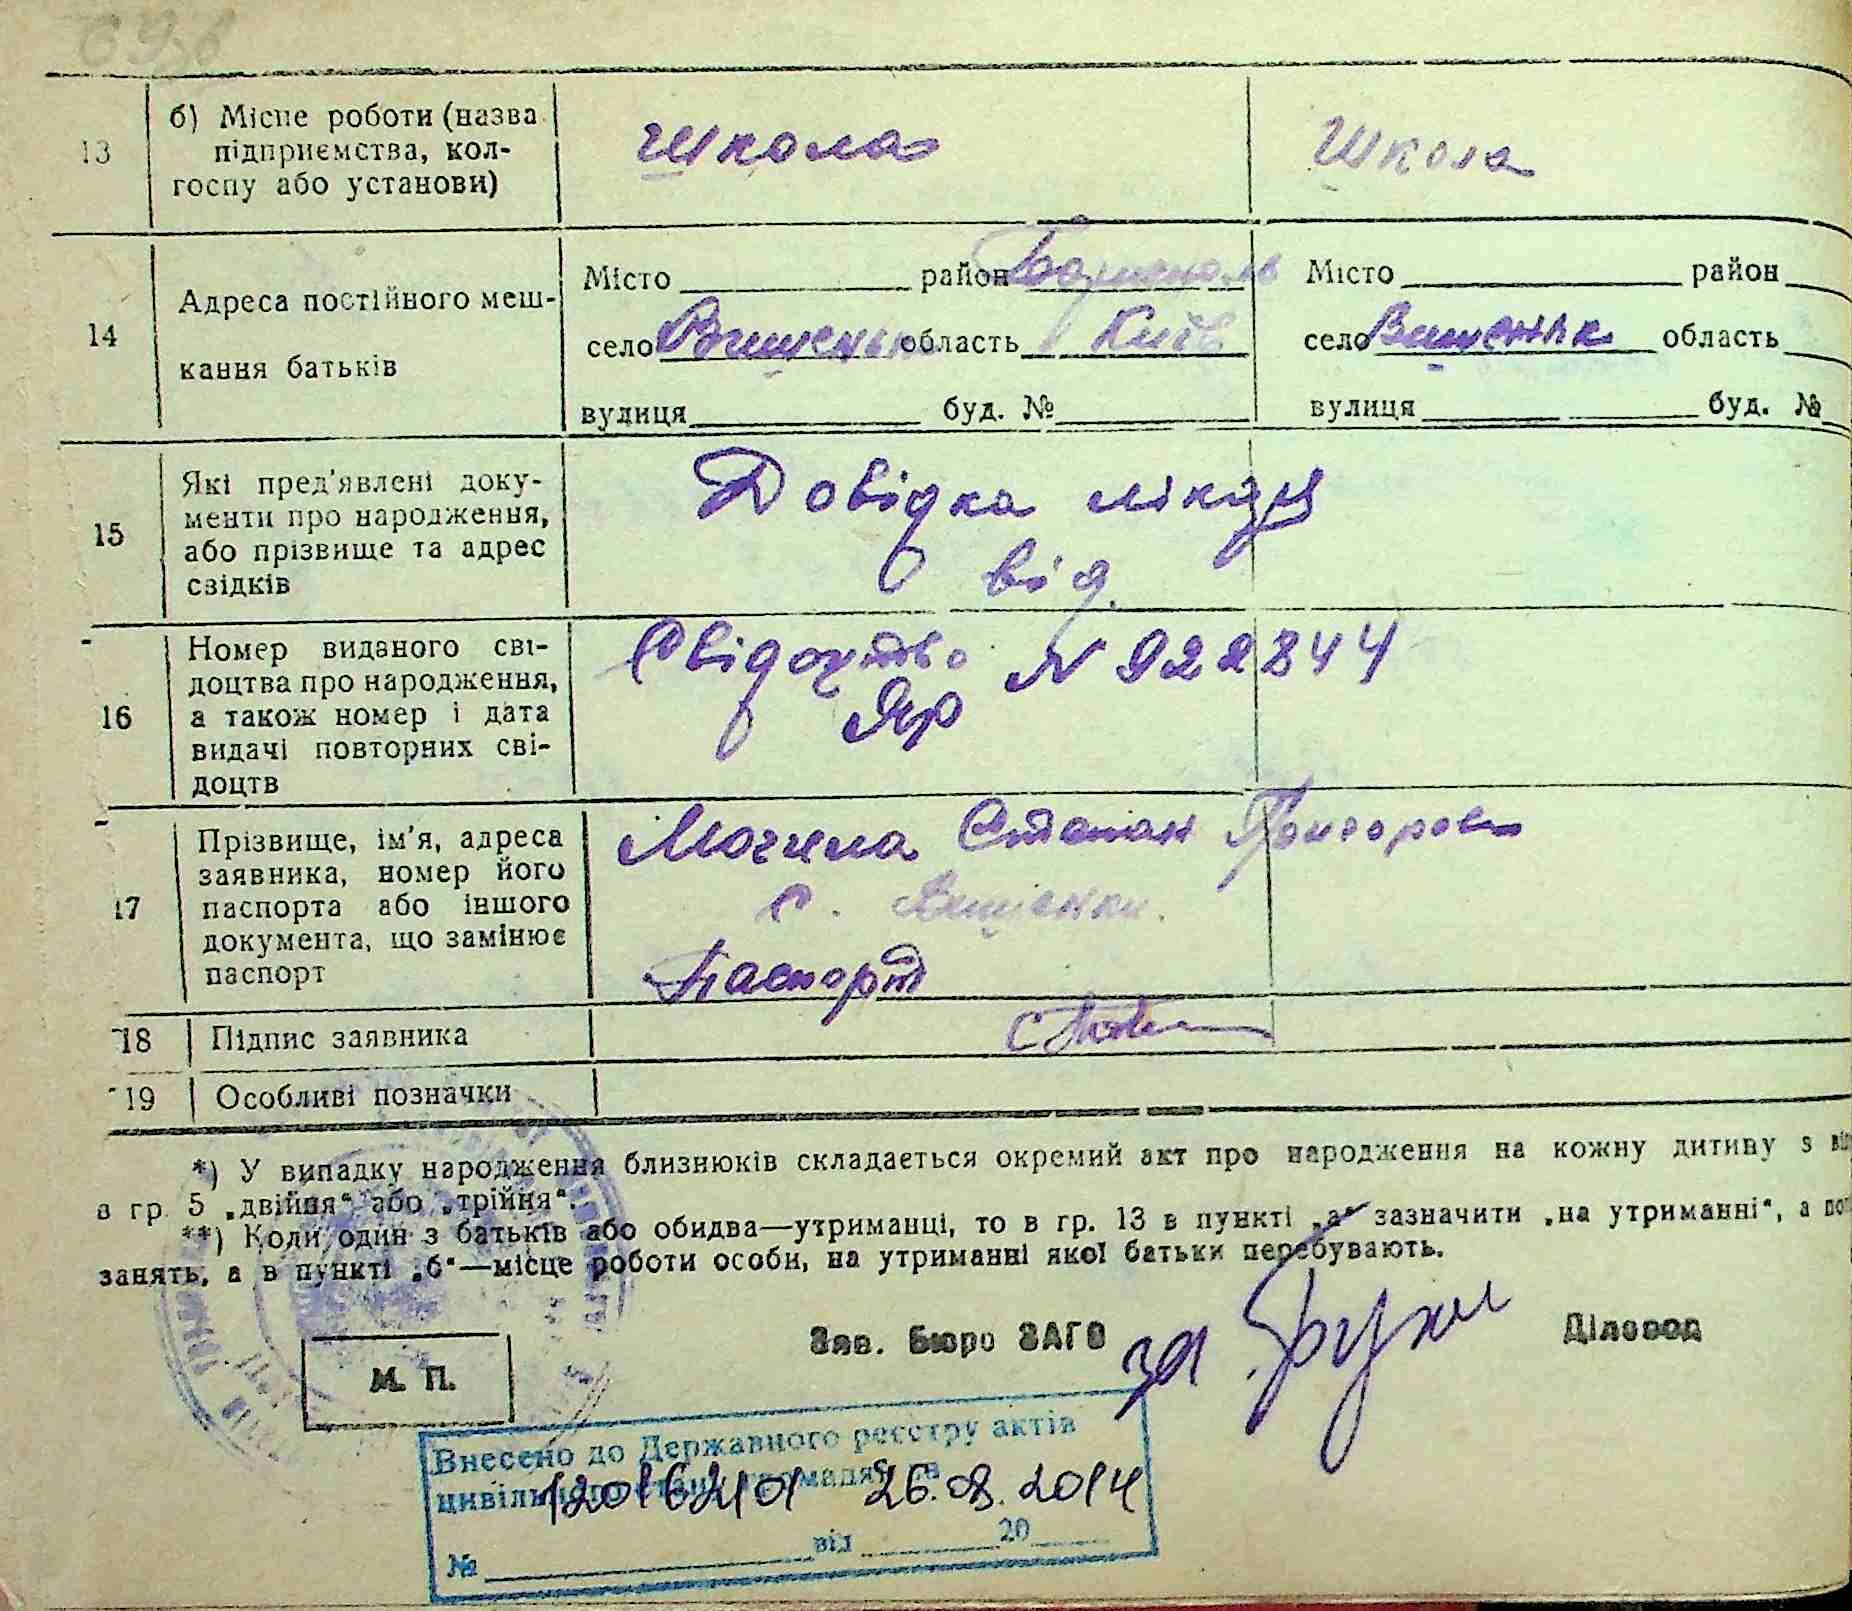 13
б) Місце роботи (назва підприємства, колгоспу або установи)
Школа
Школа
14
Адреса постійного мешкання батьків
Місто район Бориспольь
село Вишеньки область Київ
вулиця буд. №
Місто район
село Вишеньк область
вулиця буд. №
15
Які пред'явлені документи про народження, або прізвище та адрес свідків
Довідка лікаря
від
16
Номер виданого свідоцтва про народження, а також номер і дата видачі повторних свідоцтв
Свідоцтво N 922844
ЯР
17
Прізвище, ім'я, адреса заявника, номер його паспорта або іншого документа, що замінює паспорт
Могила Степан Григоров
с. Вишенки.
Паспорт
18
Підпис заявника
19
Особливі позначки
*) У випадку народження близнюків складається окремий акт про народження на кожну дитину з
в гр. 5 „двійня“ або „трійня“.
**) Коли один з батьків або обидва—утриманці, то в гр. 13 в пункті „а“ зазначити „на утриманні“, а
занять, а в пункті „б“—місце роботи особи, на утриманні якої батьки перебувають.
Зав. Бюро ЗАГС за
Діловод
М. П.
Внесено до Державного реєстру актів
цивільного стану громадян
120162101 26.08.2014
№ від 20